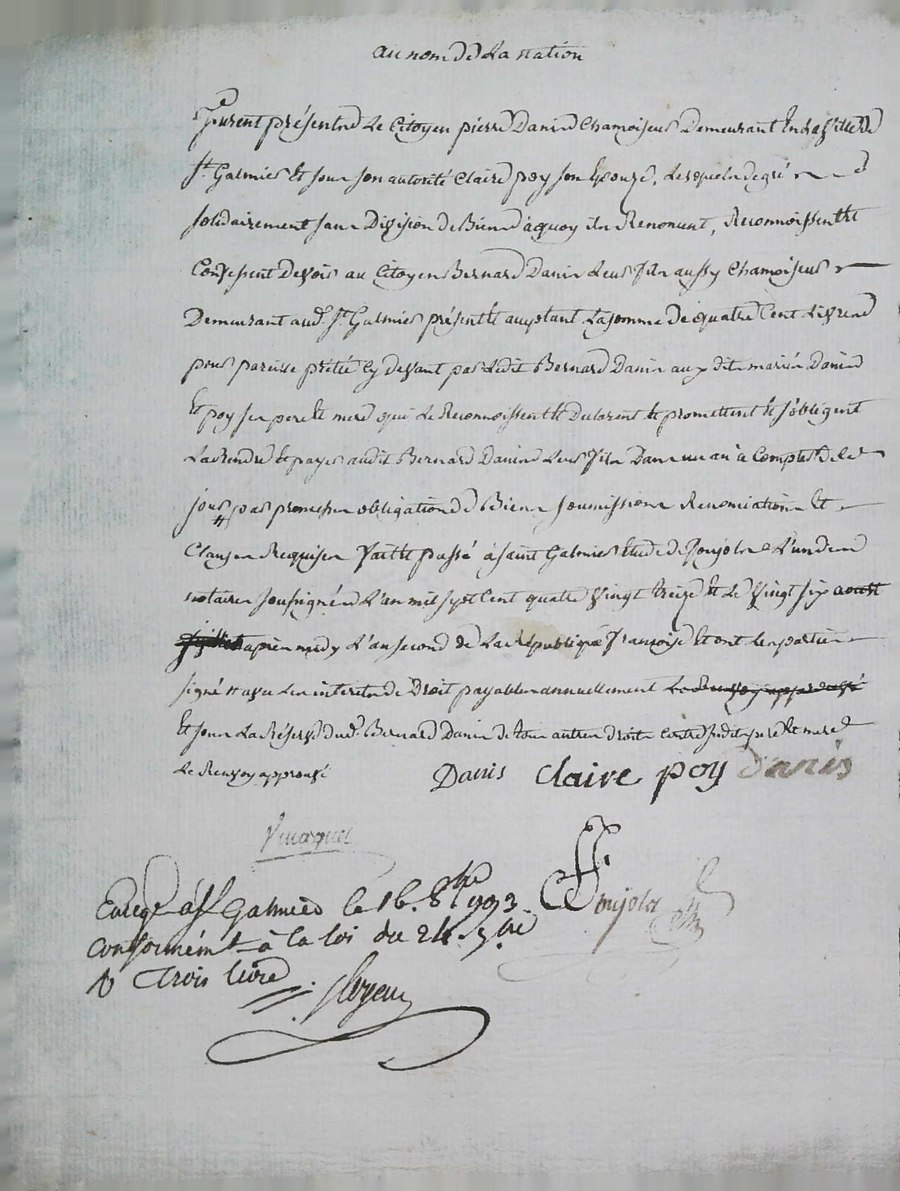 au nom de La nation
furent présents Le Citoyen pierre Danis Chamoiseur Demeurant En La Ville de
St. Galmier Et sous son autorité Claire poy son Epouse, Lesquels de gré
solidairement sans Division de Biens à quoy ils Renoncent, Reconnoissent Et
Confessent Devoir au Citoyen Bernard Danis Leur fils aussy Chamoiseur
Demeurant aud. St. Galmier présent Et acceptant La somme de quatre Cent Livres
pour pareille prêtée Cy devant par Ledit Bernard Danis aux dits mariés Danis
Et poy ses pere Et mere qui Le Reconnoissent Et Et promettent Et s'obligent
La Rendre Et payer audit Bernard Danis Leur fils Dans un an à Compter de Ce
jour par promesses obligation de Biens soumissions Renonciations Et
Clauses Requises fait Et passé à Saint Galmier Etude de Poujols L'un des
notaires soussignés L'an mil sept Cent quatre Vingt treize Et Le Vingt six aoust
après midy L'an second de La République françoise Et ont Les parties
signé avec Les interets de Droit payables annuellement Le Renvoy approuvé
Et sous La Réserve dud. Bernard Danis de tous autres droits Contre sesdits pere Et mere
Le Renvoy approuvé
Danis Claire poy Danis
Poujols
Enregé à St Galmier le 16. 8bre 1793.
conformémt à la loi du 24. 7bre
R trois livres